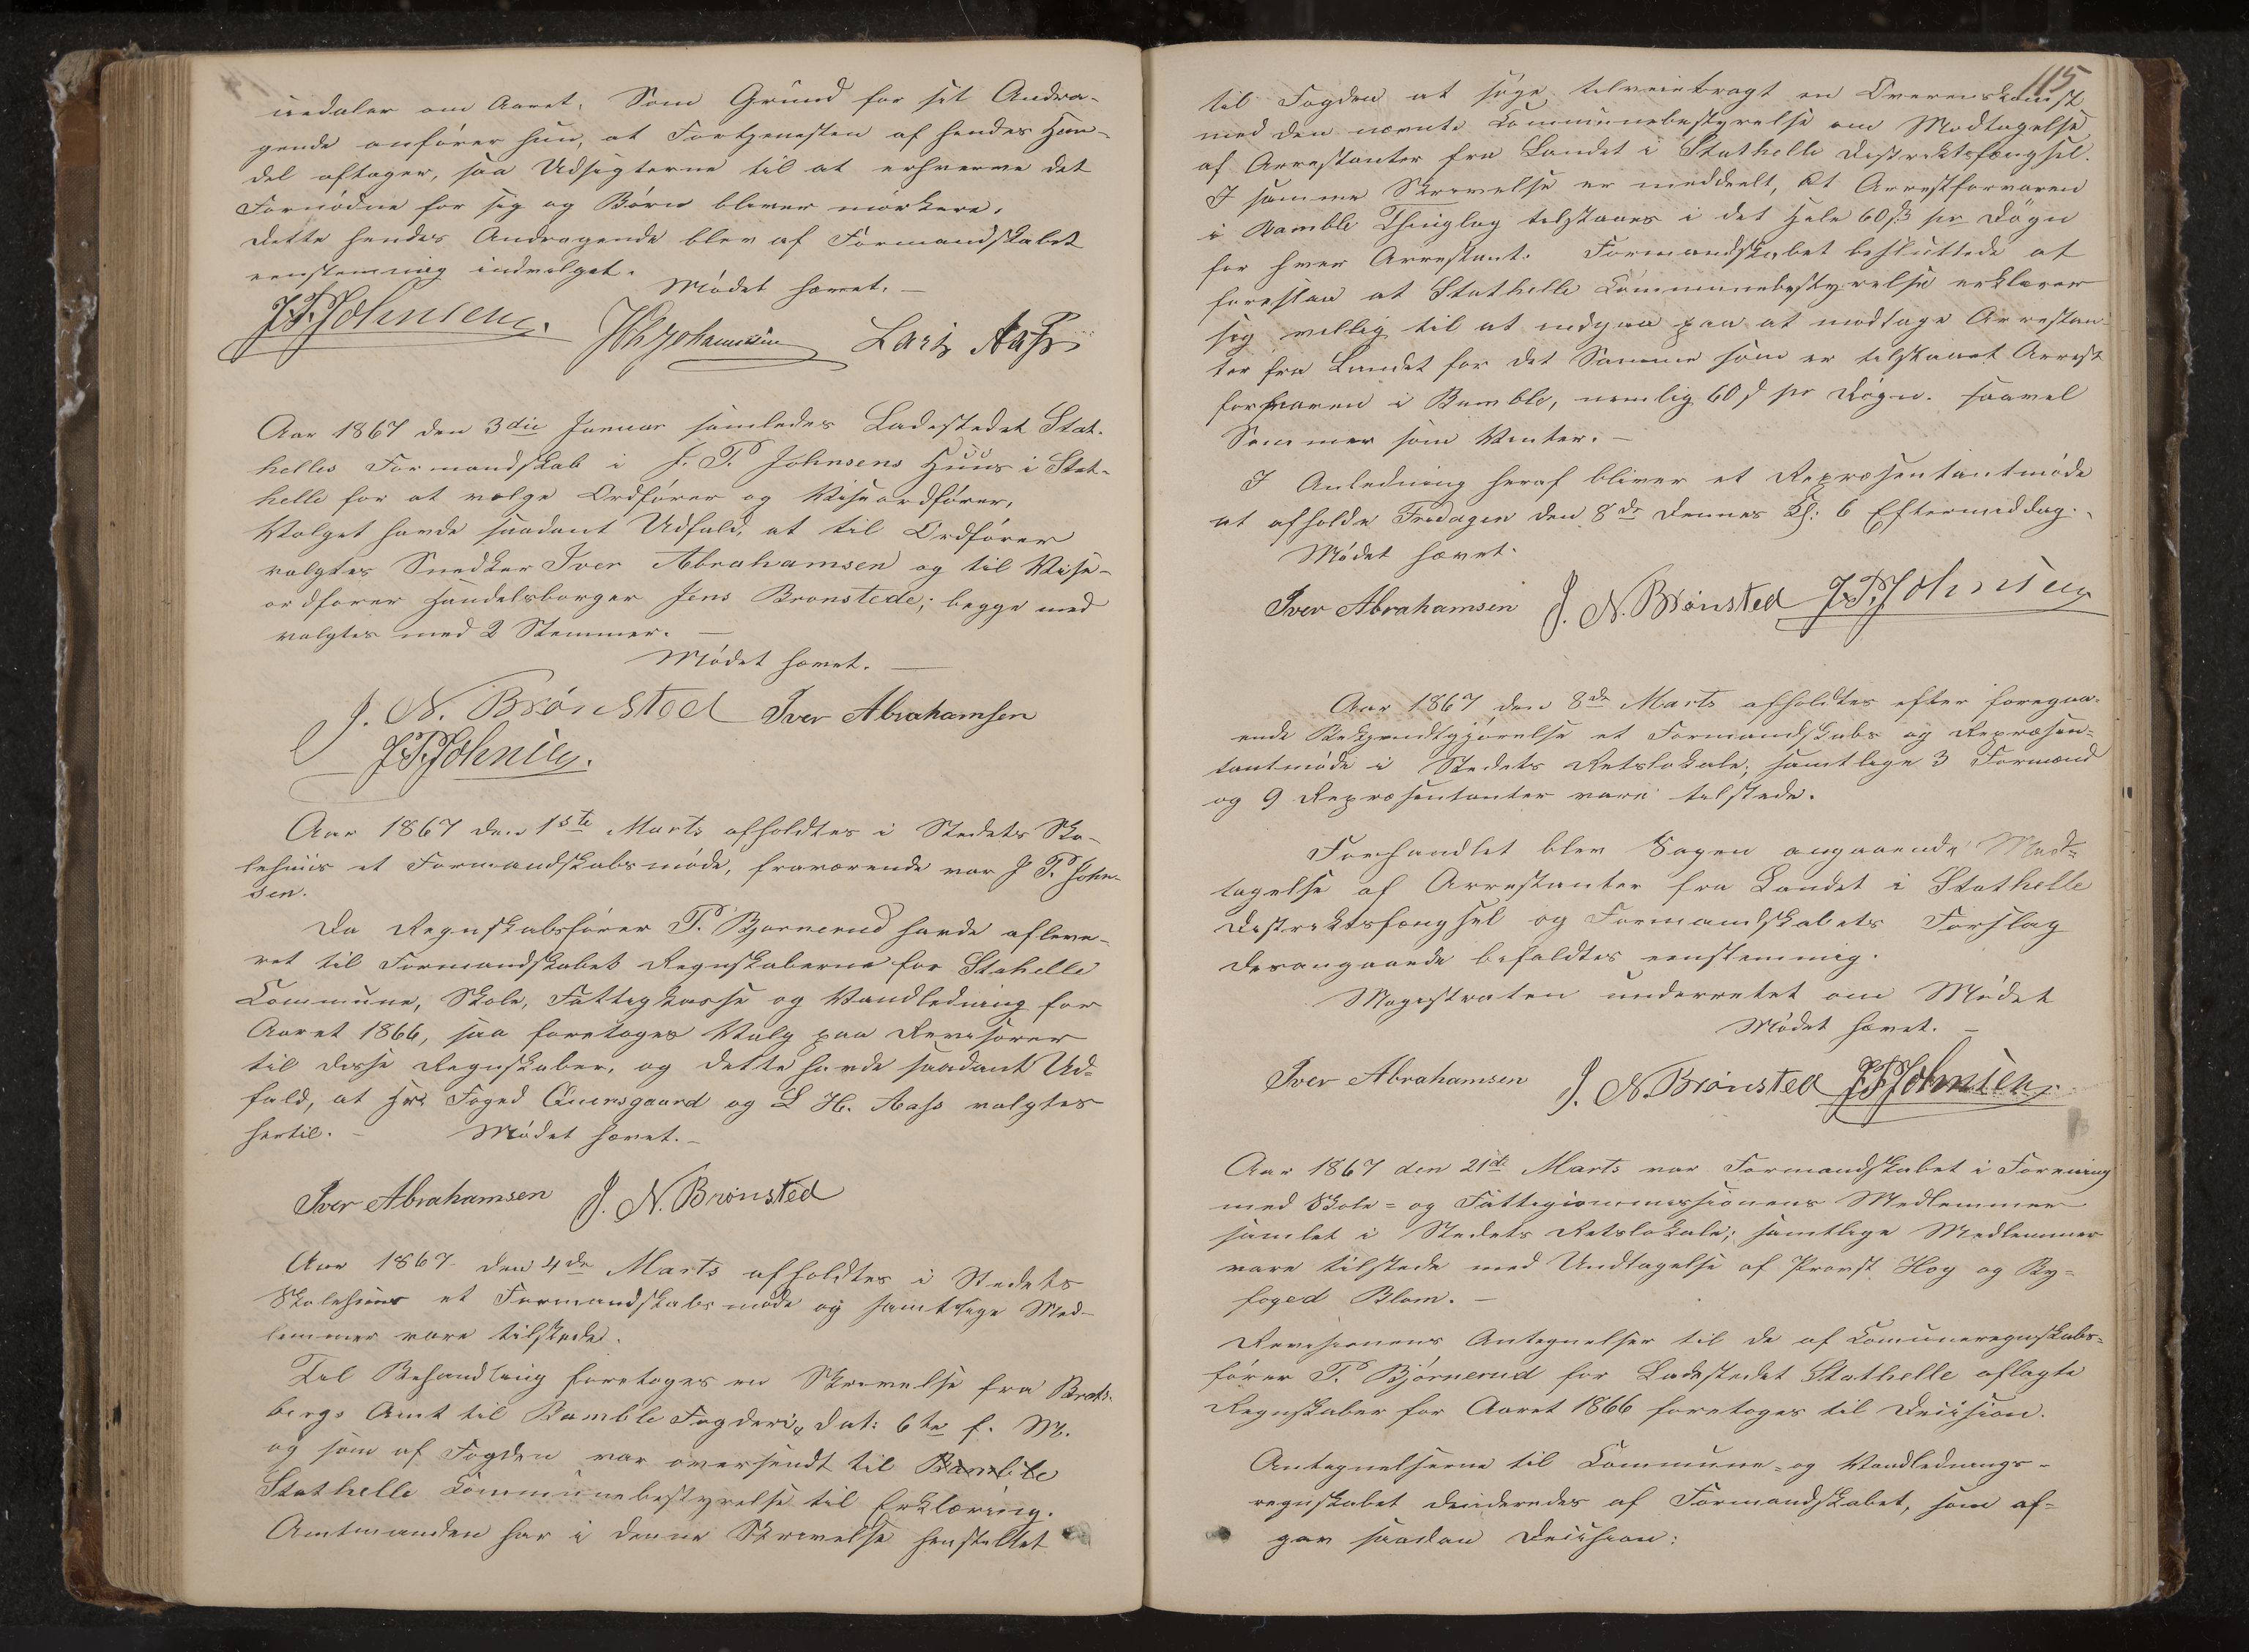 iedaler om Aaret. Som Grund for sit Andra-
gende anfører hun, at Fortjenesten af hendes Han-
del aftager, saa Udsigterne til at erhverve det
Fornødne for sig og Børn bliver mørkere.
Dette hendes Andragende blev af Formandskabet
eenstemmig indvilget.
Mødet hævet. —
J. P. Johnsen
Johannesen Lars Aass
Aar 1867 den 3die Januar samledes Ladestedet Stat-
helles Formandskab i J. P. Johnsens Huus i Stat-
helle for at vælge Ordfører og Viseordfører.
Valget havde saadant Udfald, at til Ordfører
valgtes Snedker Iver Abrahamsen og til Vise-
ordfører Handelsborger Jens Bronstede; begge med
valgtes med 2 Stemmer. —
Mødet hævet. —
J. N. Brønsted Iver Abrahamsen
J. P. Johnsen.
Aar 1867 den 1ste Marts afholdtes i Stedets Sko-
lehuus et Formandskabsmøde, fraværende var J P. John-
sen.
Da Regnskabsfører P. Bjørnerud havde afleve-
ret til Formandskabet Regnskaberne for Stahelle
Commune, Skole, Fattigkasse og Vandledning for
Aaret 1866, saa foretoges Valg paa Revisorer
til disse Regnskaber, og dette havde saadant Ud-
fald, at Hr. Foged Qvensgaard og L H. Aass valgtes
hertil. — Mødet hævet. —
Iver Abrahamsen J. N. Brønsted
Aar 1867 den 4de Marts afholdtes i Stedets
Skolehuus et Formandskabsmøde og samtlige Med-
lemmer vare tilstede.
Til Behandling foretoges en Skrivelse fra Brats-
bergs Amt til Bamble Fogderi, dat: 6te f. M.
og som af Fogden var oversendt til Bamble
Stathelle Communebestyrelse til Erklæring.
Amtmanden har i denne Skrivelse henstillet
115
til Fogden at søge tilveiebragt en Overenskomst
med den nævnte Communebestyrelse om Modtagelse
af Arrestanter fra Landet i Stathelle Distriktsfængsel.
I samme Skrivelse er meddeelt, at Arrestforvaren
i Bamble Thinglag tilstaaes i det Hele 60 ß pr Døgn
for hver Arrestant. Formandskabet besluttede at
foreslaa at Stathelle Communebestyrelse erklærer
sig villig til at indgaa paa at modtage Arrestan-
ter fra Landet for det Samme som er tilstaaet Arrest
forvaren i Bamble, nemlig 60 ß pr Døgn. saavel
Sommer som Vinter. —
I Anledning heraf bliver et Repræsentantmøde
at afholde Fredagen den 8de dennes Kl: 6 Eftermiddag.
Mødet hævet.
Iver Abrahamsen J. N. Brønsted J. P. Johnsen
Aar 1867 den 8de Marts afholdtes efter foregaa-
ende Bekjendtgjørelse et Formandskabs og Repræsen-
tantmøde i Stedets Retslokale; samtlige 3 Formænd
og 9 Repræsentanter vare tilstede.
Forhandlet blev Sagen angaaende Mod-
tagelse af Arrestanter fra Landet i Stathelle
Distriktsfængsel og Formandskabets Forslag
desangaaende bifaldtes eenstemmig.
Magistraten underrettet om Mødet
Mødet hævet. —
Iver Abrahamsen J. N. Brønsted J. P. Johnsen
Aar 1867 den 21de Marts var Formandskabet i Forening
med Skole- og Fattigcommissionens Medlemmer
samlet i Stedets Retslokale; samtlige Medlemmer
vare tilstede med Undtagelse af Provst Hoy og By-
foged Blom. —
Revisionens Antegnelser til de af Communeregnskabs-
fører P. Bjørnerud for Ladestedet Stathelle aflagte
Regnskaber for Aaret 1866 foretoges til Decision.
Antegnelserne til Commune- og Vandlednings-
regnskabet decideredes af Formandskabet, som af-
gav saadan Decision: